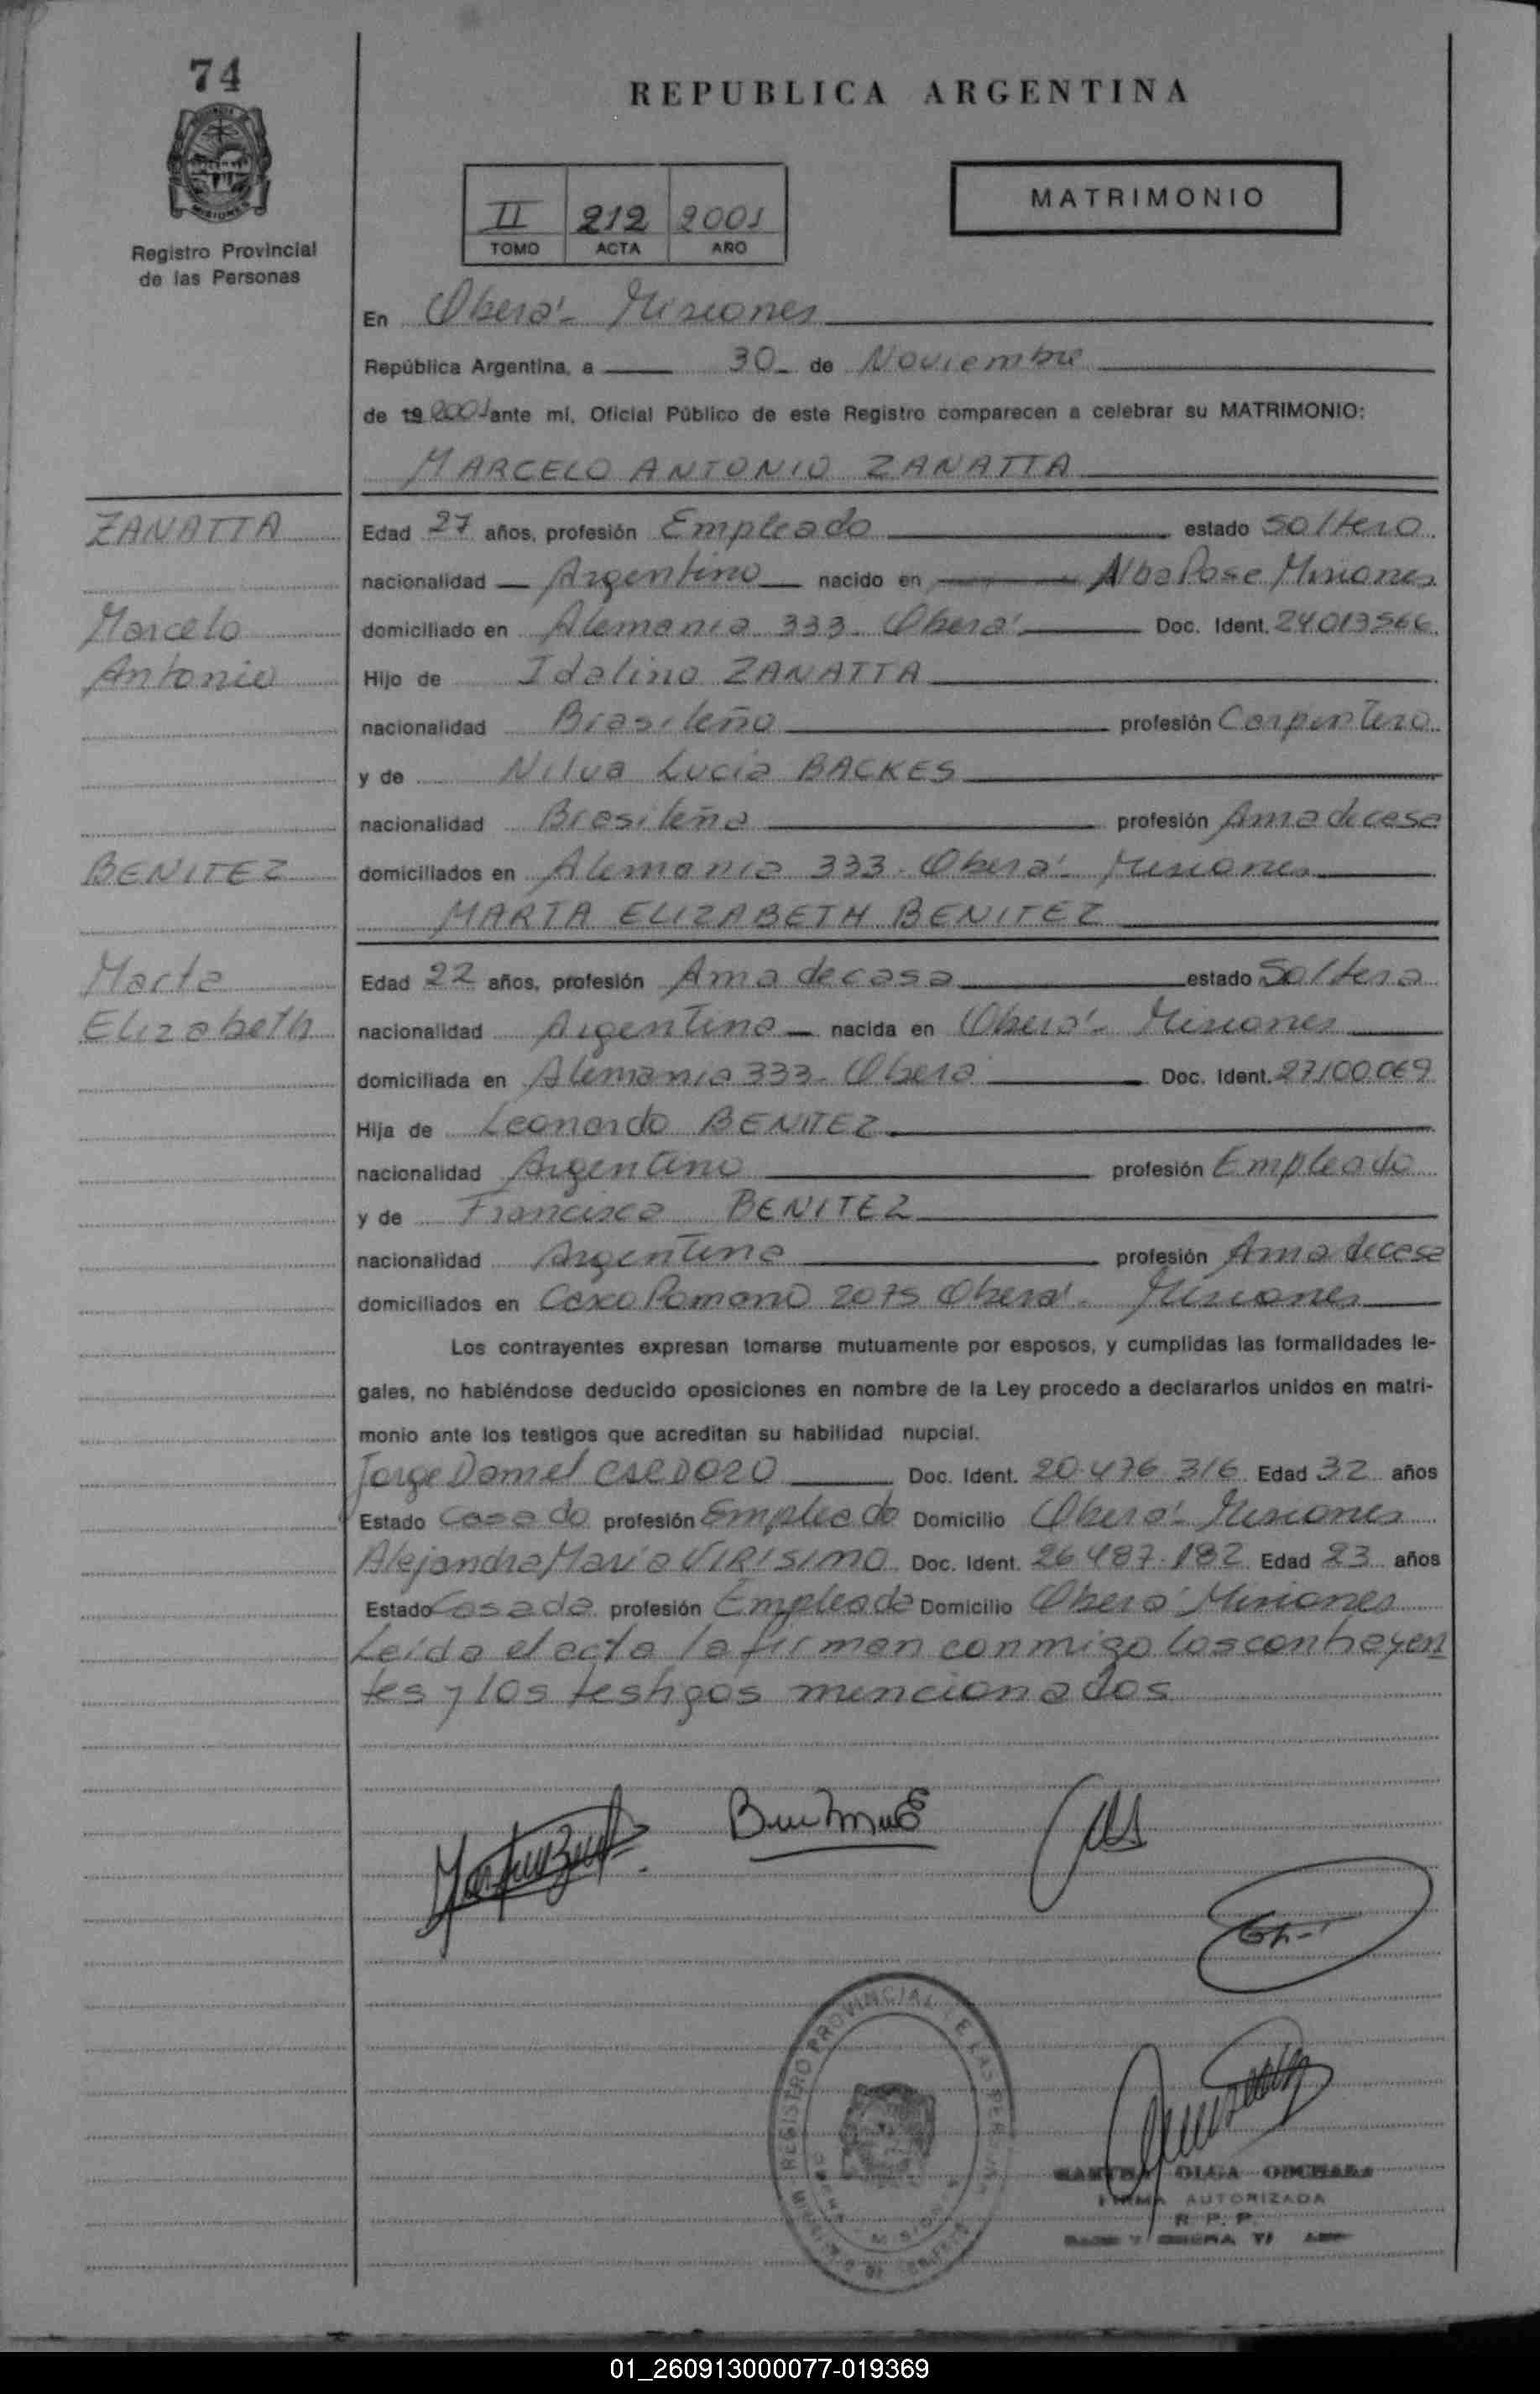 74
REPUBLICA ARGENTINA
MISIONES
Registro Provincial
de las Personas
II 212 2001
TOMO ACTA AÑO
MATRIMONIO
En Oberá - Misiones
República Argentina, a 30 de Noviembre
de 19 2001 ante mí, Oficial Público de este Registro comparecen a celebrar su MATRIMONIO:
MARCELO ANTONIO ZANATTA
ZANATTA
Edad 27 años, profesión Empleado estado soltero
nacionalidad Argentino nacido en Alba Pose Misiones
Marcelo
domiciliado en Alemania 333 - Oberá Doc. Ident. 24.013566
Antonio
Hijo de Idalino ZANATTA
nacionalidad Brasileño profesión Carpintero
y de Nilva Lucia BACKES
nacionalidad Brasileña profesión Ama de casa
BENITEZ
domiciliados en Alemania 333 - Oberá - Misiones
MARTA ELIZABETH BENITEZ
Marta
Edad 22 años, profesión Ama de casa estado Soltera
Elizabeth
nacionalidad Argentina nacida en Oberá - Misiones
domiciliada en Alemania 333 - Oberá Doc. Ident. 27.100.069
Hija de Leonardo BENITEZ
nacionalidad Argentino profesión Empleado
y de Francisca BENITEZ
nacionalidad Argentina profesión Ama de casa
domiciliados en 2075 Oberá - Misiones
Los contrayentes expresan tomarse mutuamente por esposos, y cumplidas las formalidades le-
gales, no habiéndose deducido oposiciones en nombre de la Ley procedo a declararlos unidos en matri-
monio ante los testigos que acreditan su habilidad nupcial.
Jorge Daniel Doc. Ident. 20.476.316 Edad 32 años
Estado Casado profesión Empleado Domicilio Oberá - Misiones
Alejandra María VIRISIMO Doc. Ident. 26.487.182 Edad 23 años
Estado Casada profesión Empleada Domicilio Oberá Misiones
Leída el acta la firman conmigo los contrayen
tes y los testigos mencionados
REGISTRO PROVINCIAL DE LAS PERSONAS
OLGA
FIRMA AUTORIZADA
R. P. P.
01_260913000077-019369